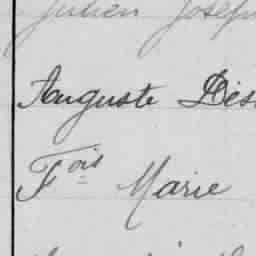 Julien Joseph
Auguste Dés
Fois Marie